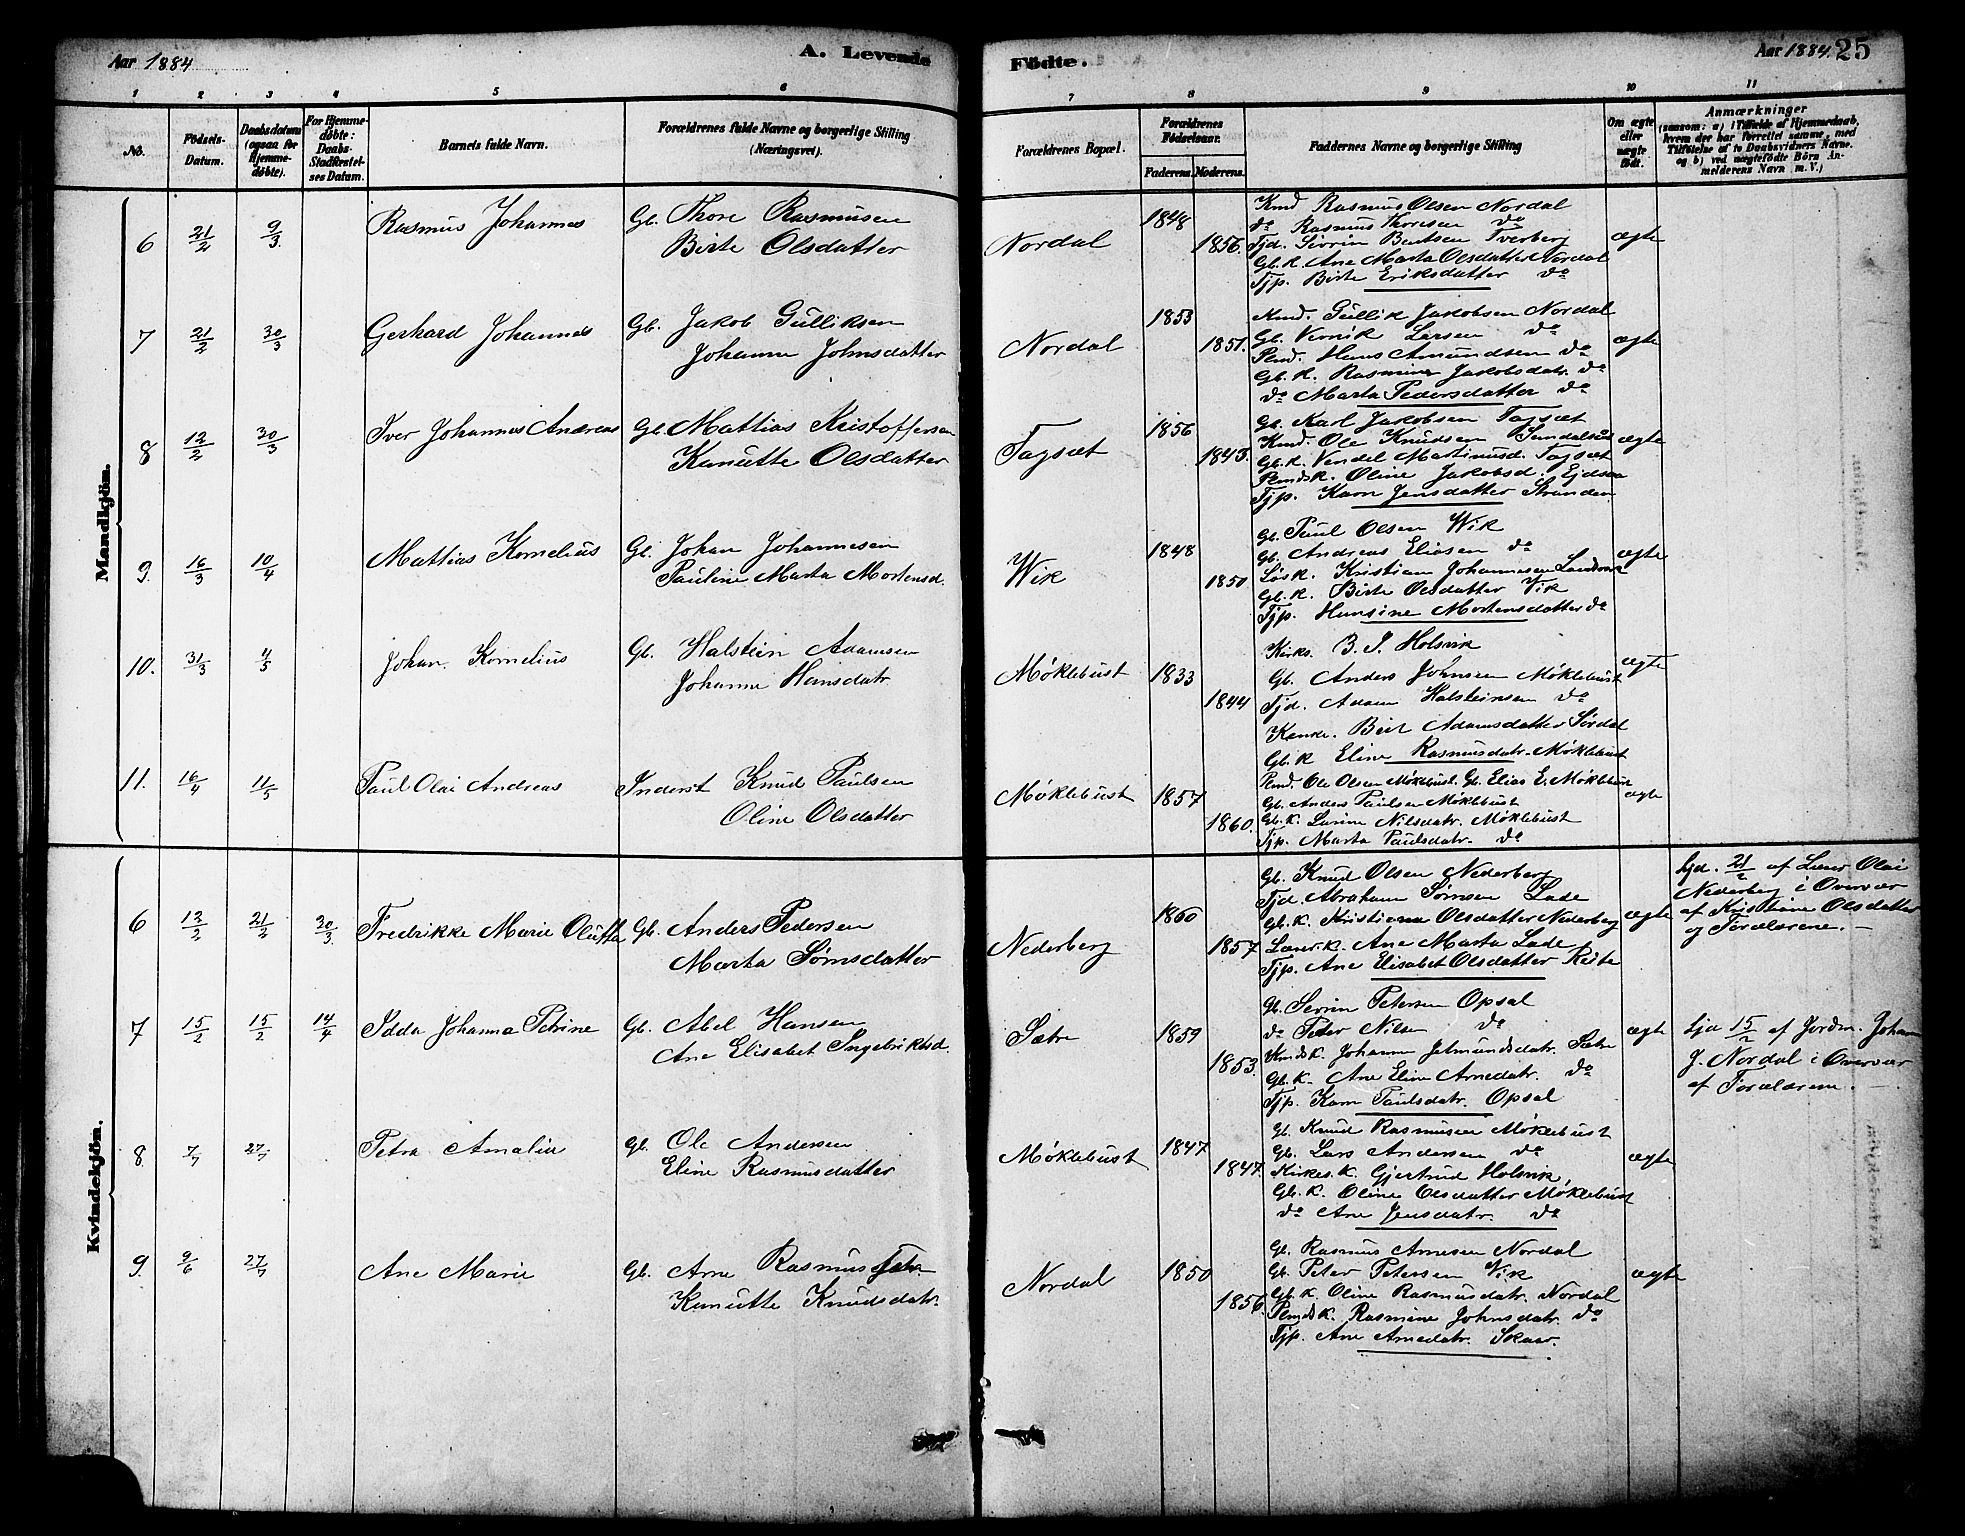 Aar 1884
A. Levende
Födte.
Aar 1884. 25
1 2 3 4 5 6 7 8 9 10 11
No.
Födsels-Datum.
Daabsdatum (ogsaa for Hjemme-døbte).
For Hjemme-døbte: Daabs-Stadfæstel-ses Datum.
Barnets fulde Navn.
Forældrenes fulde Navne og borgerlige Stilling (Næringsvei).
Forældrenes Bopæl.
Forældrenes Födselsaar.
Faderens. Moderens.
Faddernes Navne og borgerlige Stilling
Om ægte eller uægte födt.
Anmærkninger
(saasom: a) i Tilfælde af Hjemmedaab,
hvem der har forrettet samme, med
Tilföielse af to Daabsvidners Navne.
og b) ved uægtefödte Börn An-
melderens Navn m. V.)
Mandkjön.
6 21/2 9/3 Rasmus Johannes Gb. Thore Rasmusen
Birte Olsdatter
Nordal 1848 1856. ægte
Kmd Rasmus Olsen Nordal
do Rasmus Thoresen do
Tjd. Sivrin Bentsen Tverberg
Gb.k. Ane Marta Olsdatter Nordal
Tjp. Birte Eriksdatter do
7 21/2 30/3 Gerhard Johannes Gb. Jakob Gulliksen
Johanne Johnsdatter
Nordal 1853 1851. ægte
Kmd. Gullik Jakobsen Nordal
Gb. Vernik Larsen do
Pmd. Hans Amundsen do
Gb.k. Rasmine Jakobsdatr. do
do Marta Pedersdatter do
8 12/2 30/3 Iver Johannes Andreas Gb. Mattias Kristoffersen
Kanutte Olsdatter
Fagsæt 1856 1843. ægte
Gb. Karl Jakobsen Fagsæt
Kmd. Ole Knudsen
Gb.k. Vendel Martinusd. Fagsæt
Pmdsk. Oline Jakobsd.
Tjp. Karn Jensdatter Stranden
9. 16/3 10/4 Mattias Kornelius Gb. Johan Johannesen
Pauline Marta Mortensd.
Wik 1848 1850 ægte
Gb. Paul Olsen Wik
Gb. Andreas Eliasen do
Løsk. Kristian Johannesen
Gb.k. Birte Olsdatter Vik
Tjp. Hansine Mortensdatter do
10. 31/3 11/5 Johan Kornelius Gb. Halstein Adamsen
Johanne Hansdatr
Møklebust 1833 1844 ægte
Kirks. B. J. Holsvik
Gb. Anders Johnsen Møklebust
Tjd. Adam Halsteinsen do
Berit Adamsdatter Sørdal
Gb.k Eline Rasmusdatr. Møklebust
11. 16/4 11/5 Paul Olai Andreas Inderst Knud Paulsen
Oline Olsdatter
Møklebust 1857 1860. ægte
Pmd. Ole Olsen Møklebust. Gb. Elias E. Møklebust
Gb. Anders Paulsen Møklebust
Gb.k. Larine Nilsdatr. Møklebust
Tjp. Marta Paulsdatr. do
Kvindekjön.
6 12/2 21/2 30/3 Fredrikke Marie Olutta Gb. Anders Pedersen
Marta Sørnsdatter
Nederberg 1860 1857 ægte
Gb. Knud Olsen Nederberg
Tjd. Abraham Sørnsen Lade
Gb.k. Kristiana Olsdatter Nederberg
Lærerk. Ane Marta Lade
Tjp. Ane Elisabet Olsdatter
hjd. 21/2 af Lærer Olai
Nederberg i Overvær
af Kristiane Olsdatter
og Forældrene.
7 15/2 15/2 14/4 Idda Johanna Petrine Gb. Abel Hansen
Ane Elisabet Ingebriktsd.
Sætre 1859 1853. ægte
Gb. Serrin Petersen Opsal
do Peter Nilsen do
Kmdsk. Johanne Jetmundsdatr. Sætre
Gb.k. Ane Eline Arnedatr. do
Tjp. Karn Paulsdatr. Opsal
hjd 15/2 af Jordm. Johan
J. Nordal i Overvær
af Forældrene.
8 7/7 27/7 Petra Amalia Gb. Ole Andersen
Eline Rasmusdatter
Møklebust 1847 1847. ægte
Gb. Knud Rasmusen Møklebust
Gb. Lars Andersen do
Kirkes.k. Gjertrud Holsvik,
Gb.k. Oline Olsdatter Møklebust
do Ane Jensdatr. do
9. 9/6 27/7 Ane Marie Gb. Arne Rasmus
Kanutte Knudsdatr.
Nordal 1850 1856. ægte
Gb. Rasmus Arnesen Nordal
Gb. Peter Petersen Vik
Gb.k. Oline Rasmusdatr. Nordal
Pmdsk. Rasmine Johnsdatr. do
Tjp. Ane Arnedatr. Skaar.